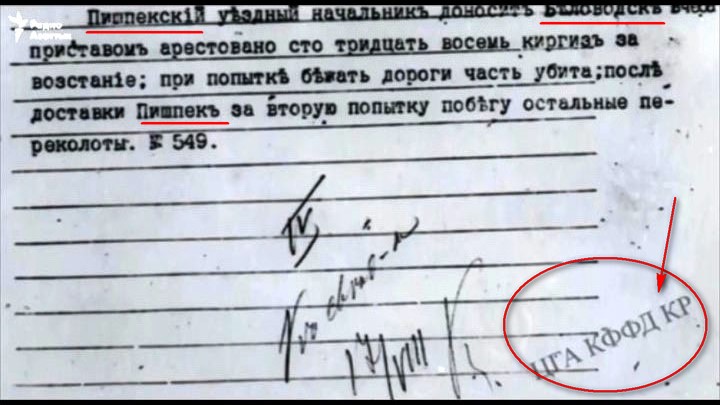 Радио Азаттык
Пишпекскій уѣздный начальникъ доноситъ Бѣловодскѣ вчера
приставомъ арестовано сто тридцать восемь киргизъ за
возстаніе; при попыткѣ бѣжать дороги часть убита;послѣ
доставки Пишпекъ за вторую попытку побѣгу остальные пе-
реколоты. № 549.
17/VIII
ЦГА КФФД КР